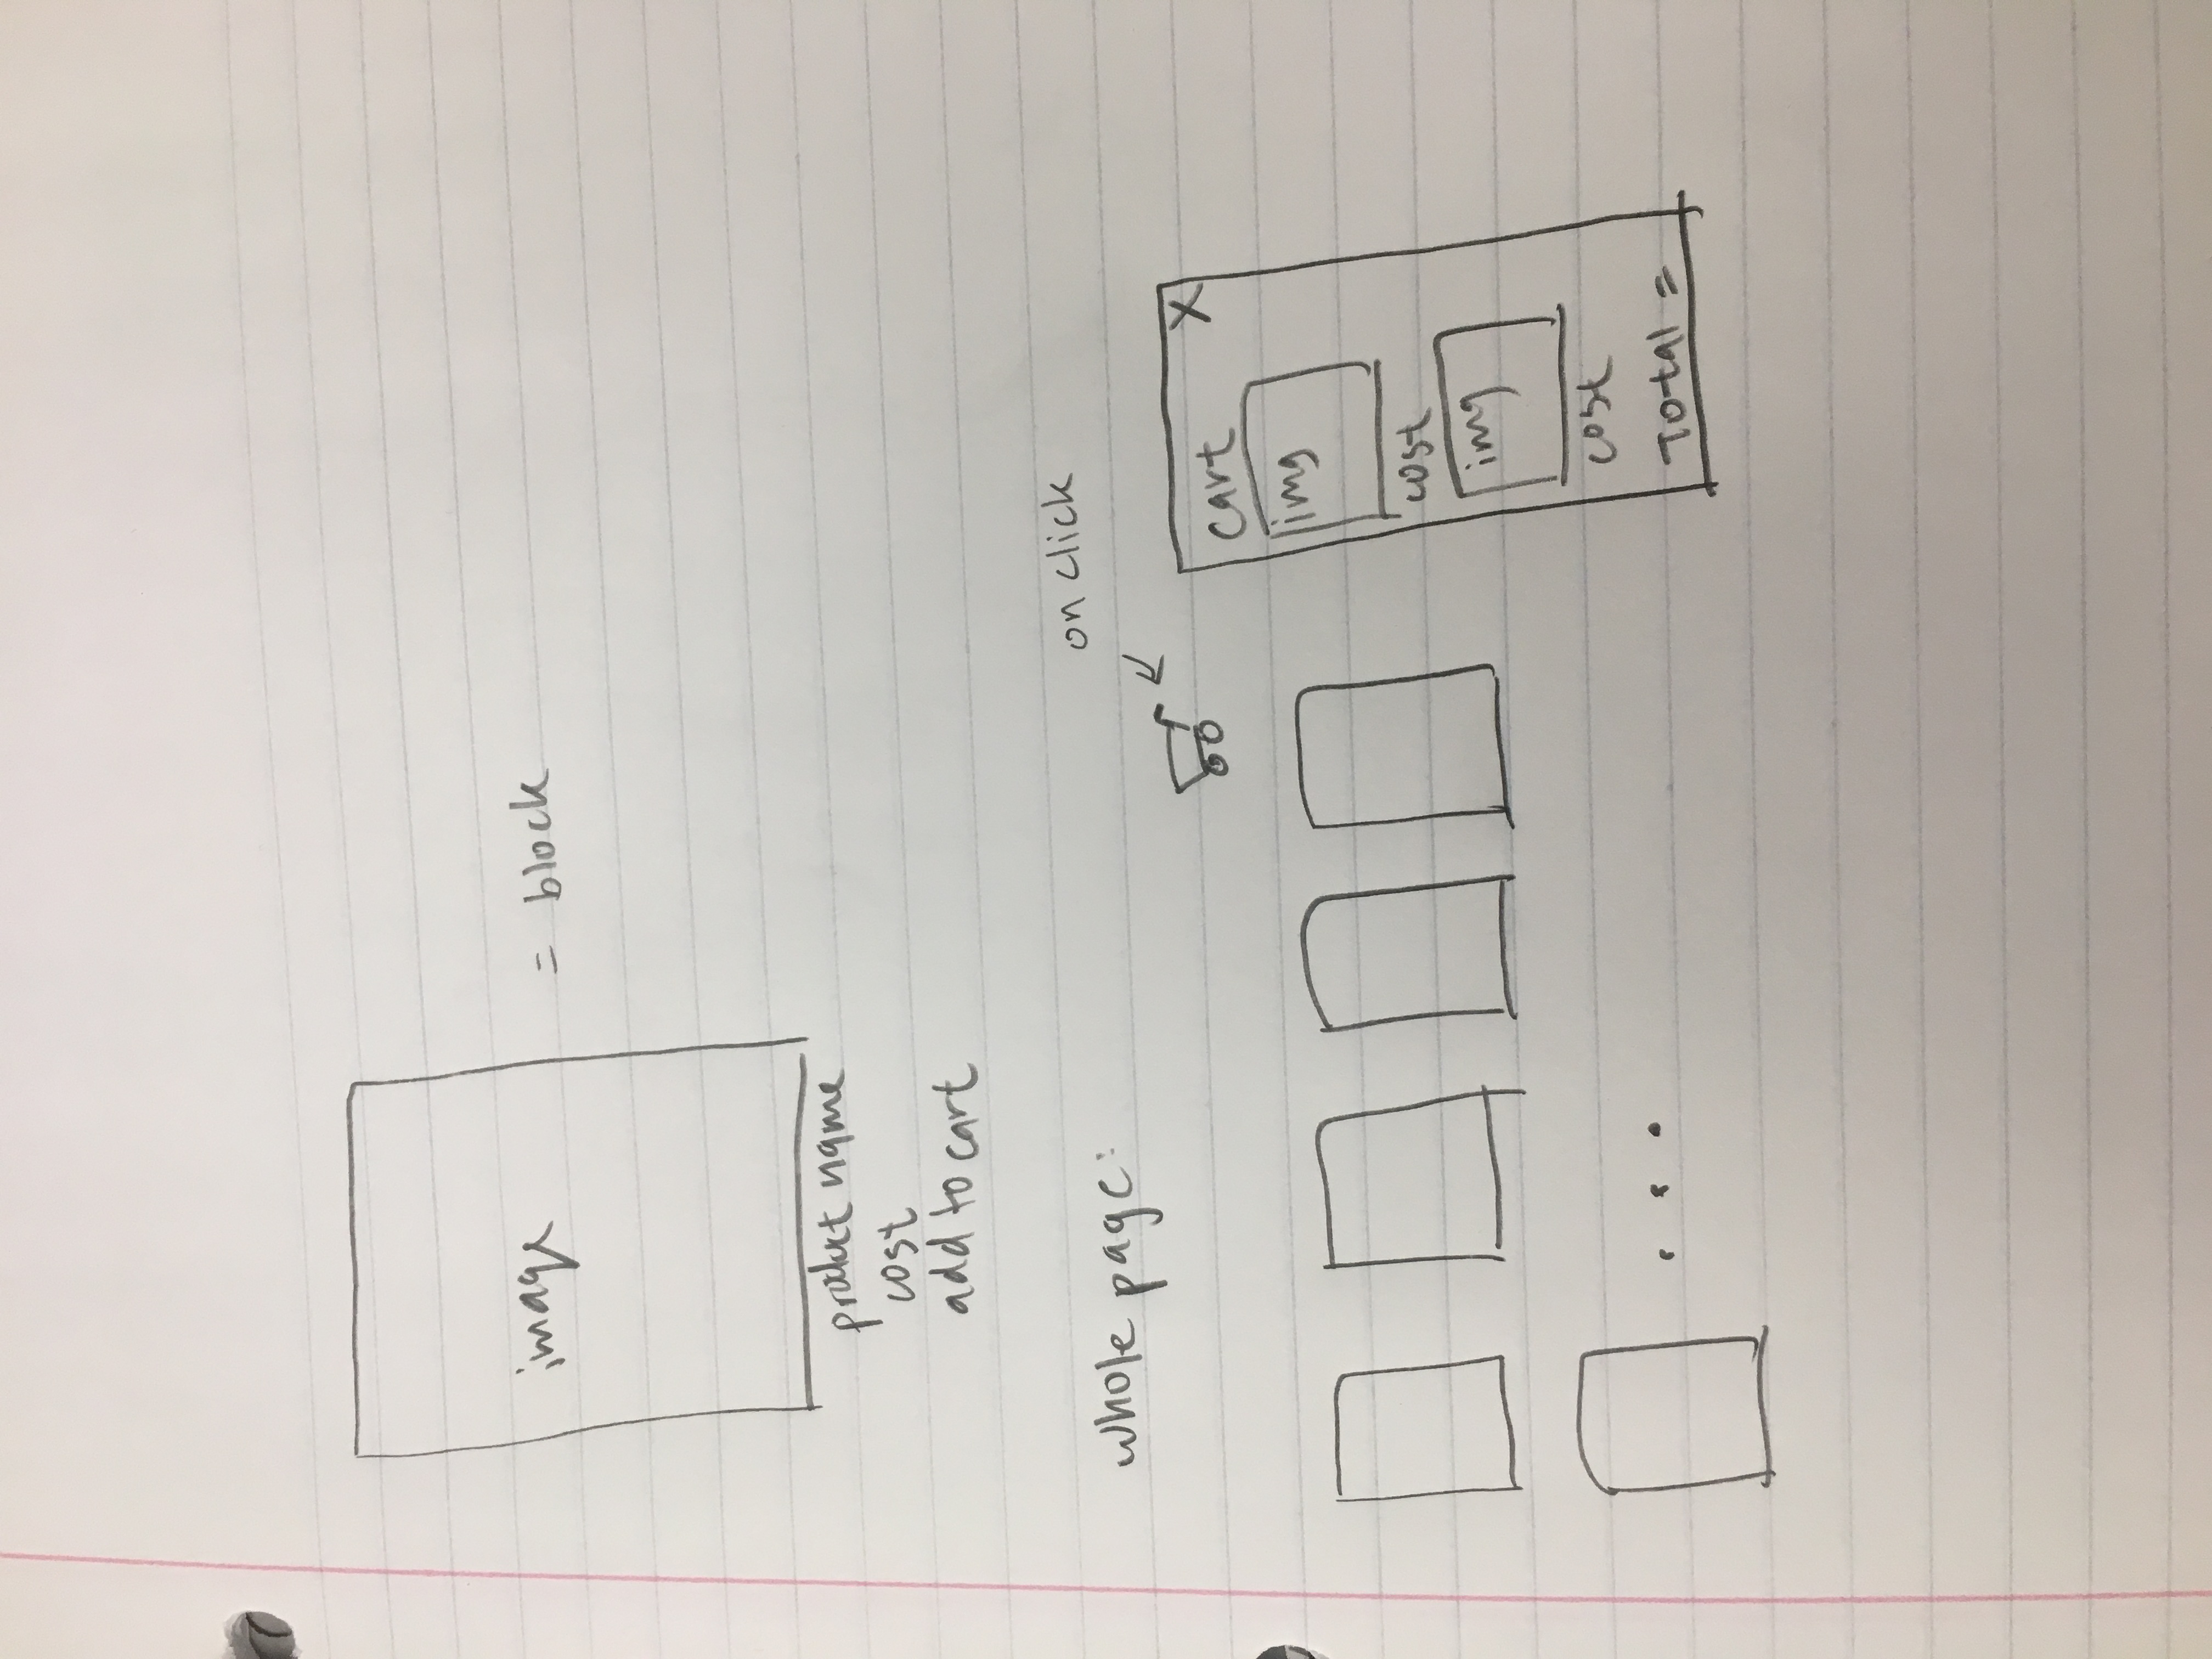 image
= block
product name
cost
add to cart
on click
whole page:
X
cart
img
cost
img
cost
Total =